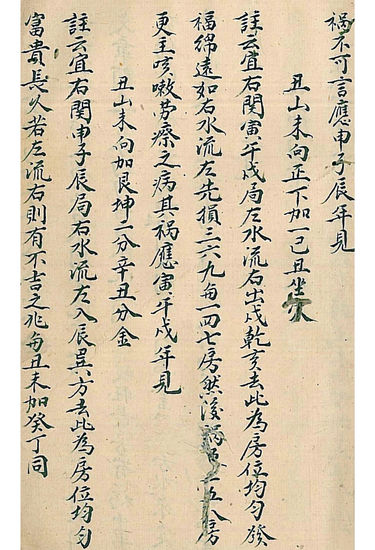 禍不可言應申子辰年見
丑山未向正下加一己丑坐火
註云宜右関寅午戌局左水流右出戌乾亥去此為房位均勻發
福綿遠如右水流左先損三六九每一四七房然後禍二五八房
更主咳嗽劳瘵之病其禍應寅午戌年見
丑山未向加艮坤一分辛丑分金
註云宜右関申子辰局右水流左入辰巽方去此為房位均勻
富貴長久若左流右則有不吉之兆每丑未加癸丁同